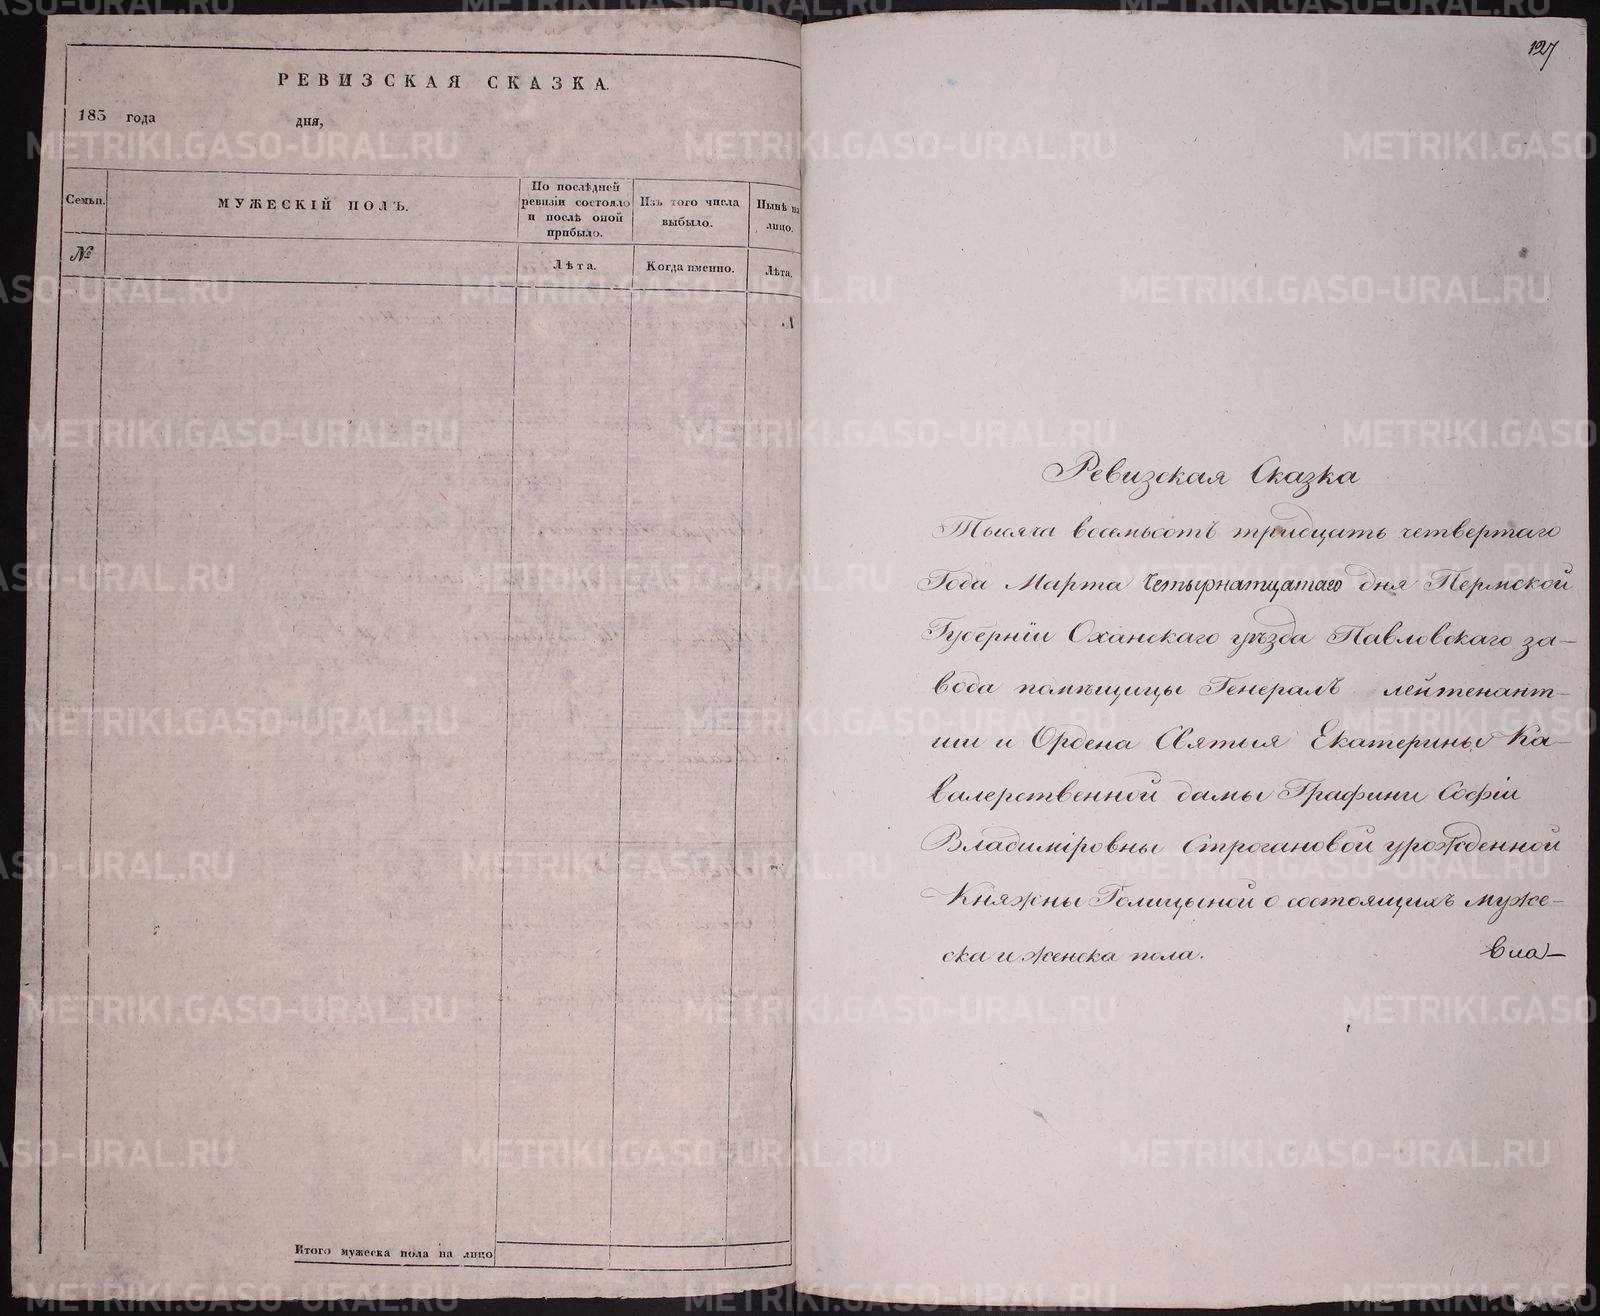 РЕВИЗСКАЯ СКАЗКА.
183 года дня,
Семьи.
МУЖЕСКІЙ ПОЛЪ.
По послѣдней
ревизіи состояло
и послѣ оной
прибыло.
Изъ того числа
выбыло.
Нынѣ на
лицо.
№
Лѣта.
Когда именно.
Лѣта.
Итого мужеска пола на лицо
127
Ревизская Сказка
Тысяча восемьсотъ тридцать четвертаго
Года Марта четырнатцатаго дня Пермской
Губерніи Оханскаго уѣзда Павловскаго за-
вода помѣщицы Генералъ лейтенант-
ши и Ордена Святыя Екатерины Ка-
валерственной дамы Графини Софіи
Владиміровны Строгановой урожденной
Княжны Голицыной о состоящихъ муже-
ска и женска пола. вла-
METRIKI.GASO-URAL.RU